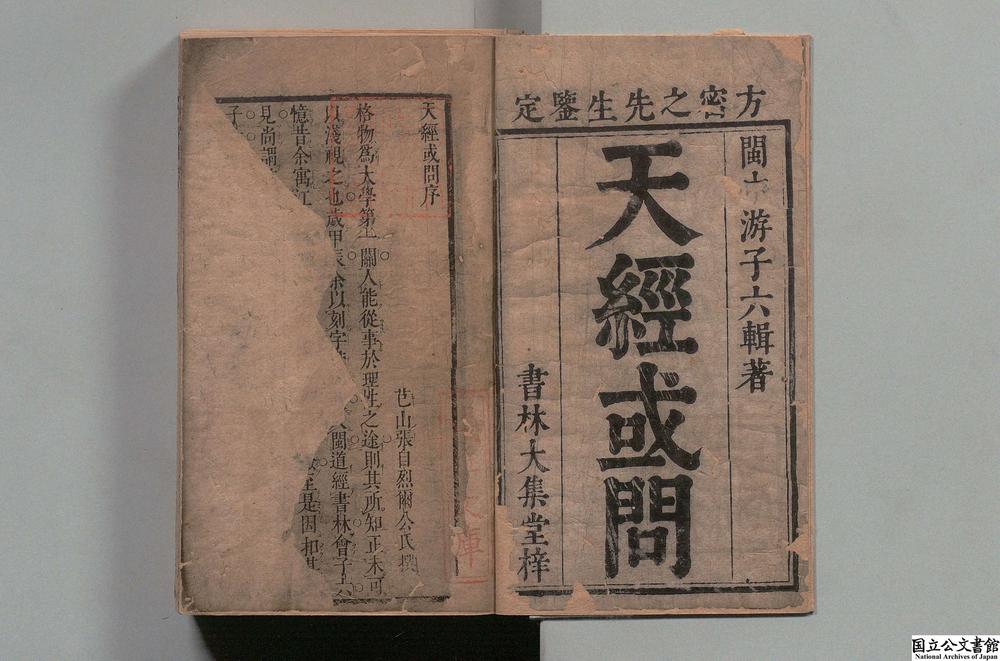 方密之先生鑒定
閩 游子六輯著
天經或問
書林大集堂梓
天經或問序
芑山張自烈爾公氏撰
格物為大學第 關人能從事於理性之途則其所知正未可
以淺視之也歲甲辰余以刻字 閩道經書林會子六
憶昔余寓江 是因扣其
見尚謂
子
国立公文書館
National Archives of Japan